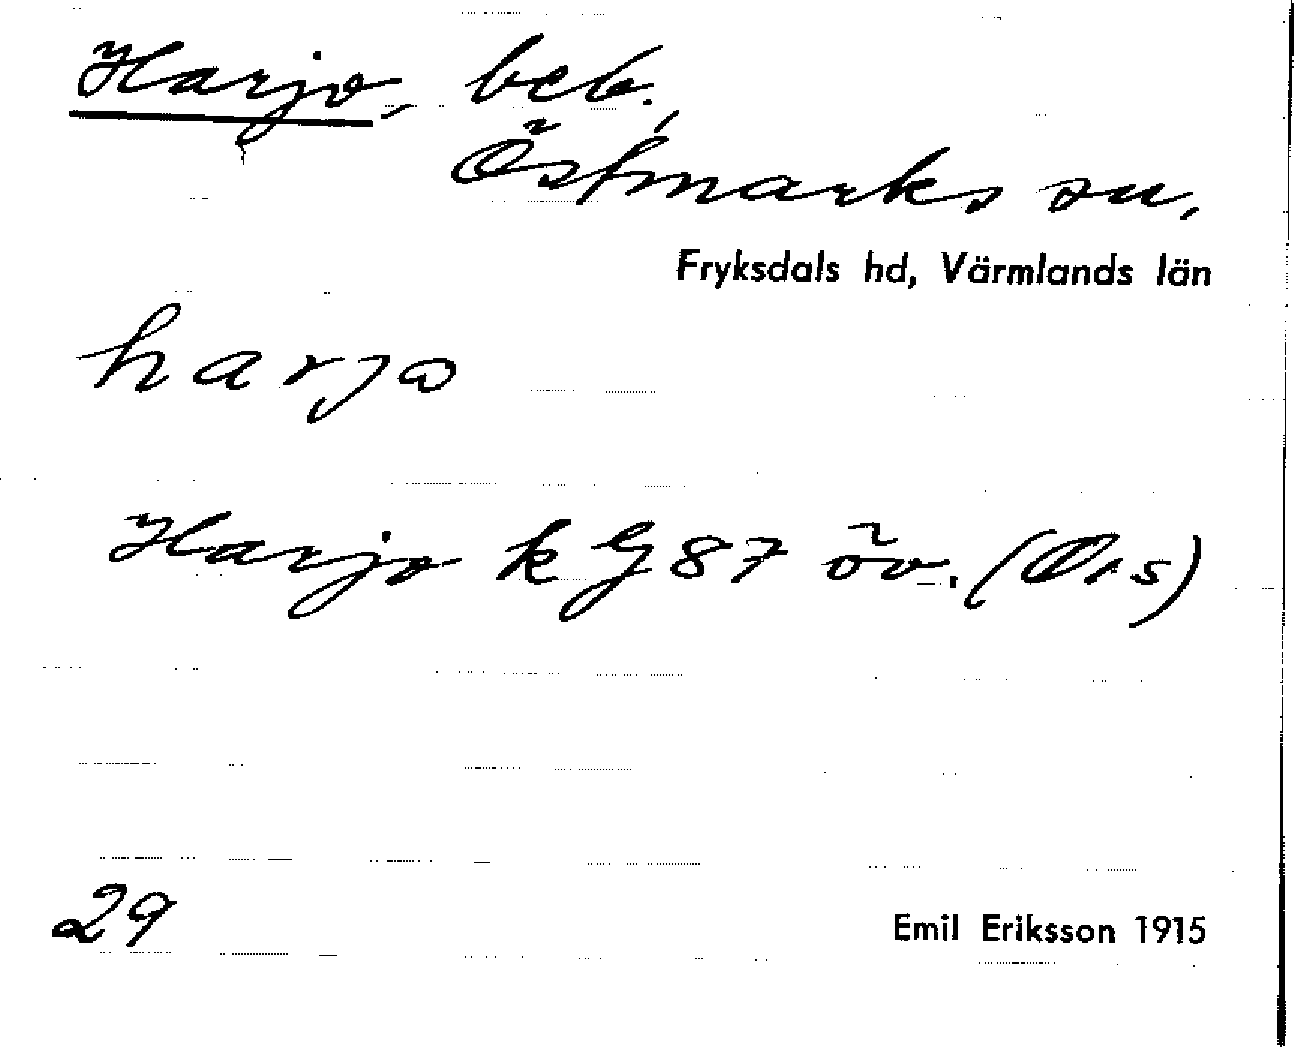 Harjo, beb.,
Östmarks sn,
Fryksdals hd, Värmlands län
harjo
Harjo k G 87 öv.
29
Emil Eriksson 1915